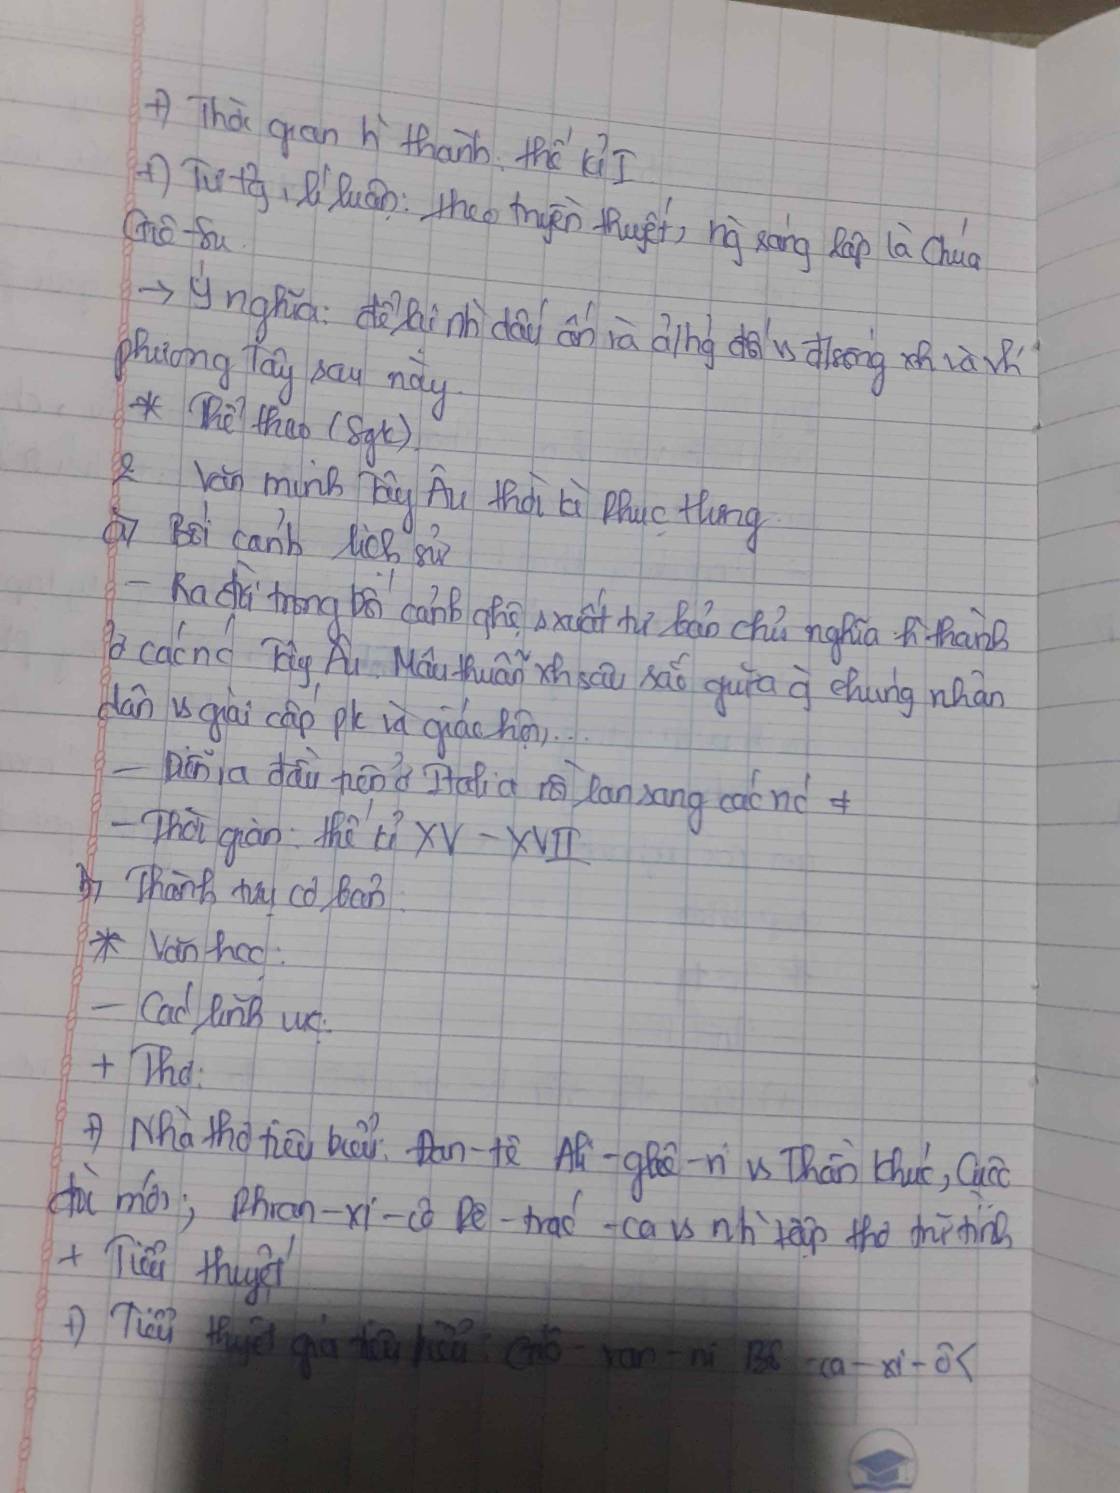 +) Thời gian hì thành: thế kỉ I
+) Tư tg, lí luận: theo truyền thuyết, ng sáng lập là Chúa
Giê-su.
→ Ý nghĩa: để lại nhì dấu ấn và a/hg đối vs đ/sống xh và vh
phương Tây sau này.
* Thể thao (Sgk)
2. Văn minh Tây Âu thời kì Phục Hưng
a, Bối cảnh lịch sử
- Ra đời trong bối cảnh qhệ sxuất tư bản chủ nghĩa hì thành
ở các nc Tây Âu. Mâu thuẫn xh sâu sắc giữa q chúng nhân
dân vs giai cấp pk và giáo hội,...
- Diễn ra đầu tiên ở Italia rồi lan sang các nc ≠
- Thời gian: thế kỉ XV - XVII
b, Thành tựu cơ bản
* Văn học:
- Các lĩnh vực:
+ Thơ:
+) Nhà thơ tiêu biểu: Đan-tê A-li-ghê-ri vs Thần khúc, Cuộc
đời mới; Phran-xi-cô Pê-trác-ca vs nhì tập thơ trữ tình
+ Tiểu thuyết
+) Tiểu thuyết gia tiêu biểu: Giô-van-ni Bô-ca-xi-ô <